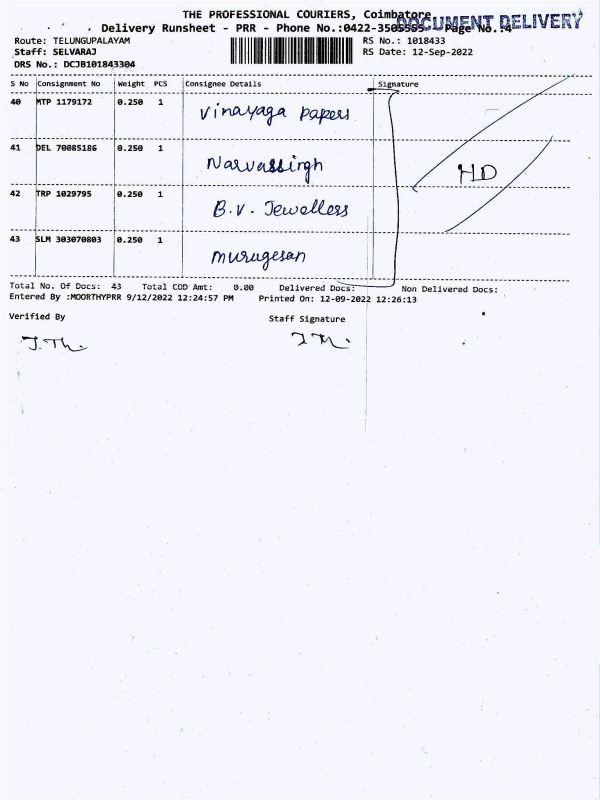 THE PROFESSIONAL COURIERS, Coimbatore
DOCUMENT DELIVERY
Delivery Runsheet - PRR - Phone No.:0422-3505555 - Page No.:4
Route: TELUNGUPALAYAM RS No.: 1018433
Staff: SELVARAJ RS Date: 12-Sep-2022
DRS No.: DCJB101843304
S No Consignment No Weight PCS Consignee Details Signature
40 MTP 1179172 0.250 1 Vinayaga papers
41 DEL 70085186 0.250 1 Narvassingh
HD
42 TRP 1029795 0.250 1 B.V. Jewellers
43 SLM 303070803 0.250 1 Murugesan
Total No. Of Docs: 43 Total COD Amt: 0.00 Delivered Docs: Non Delivered Docs:
Entered By :MOORTHYPRR 9/12/2022 12:24:57 PM Printed On: 12-09-2022 12:26:13
Verified By Staff Signature